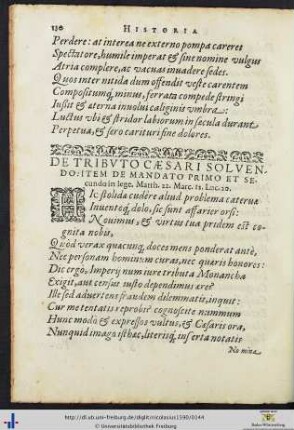 130 HISTORIA
Perdere: at interea ne externo pompa careret
Spectatore, humile imperat & sine nomine vulgus
Atria complere, ac vacuas inuadere sedes.
Quos inter nitida dum offendit veste carentem
Compositumq́, minus, ferrata compede stringi
Iussit & æterna inuolui caliginis vmbra:
Luctus vbi & stridor labiorum in secula durant
Perpetua, & sero carituri fine dolores.
DE TRIBVTO CÆSARI SOLVEN-
DO: ITEM DE MANDATO PRIMO ET SE-
cundo in lege. Matth. 22. Marc. 12. Luc. 20.
HIc stolida cudere aliud problema cateruæ
Inuentoq́, dolo, sic sunt affarier orsi:
Nouimus, & virtus tua pridem est co-
gnita nobis,
Quòd verax quacunq́, doces mens ponderat antè,
Nec personam hominum curas, nec quæris honores:
Dic ergo, Imperij num iure tributa Monarcha
Exigit, aut census iusto dependimus ære?
Ille sed aduertens fraudem delemmatis, inquit:
Cur me tentatis reprobi? cognoscite nummum
Hunc modò & expressos vultus, & Cæsaris ora,
Nunquid imago isthæc, literisq́, inserta notatis
No mina
http://dl.ub.uni-freiburg.de/diglit/nicolasius1590/0144
© Universitätsbibliothek Freiburg